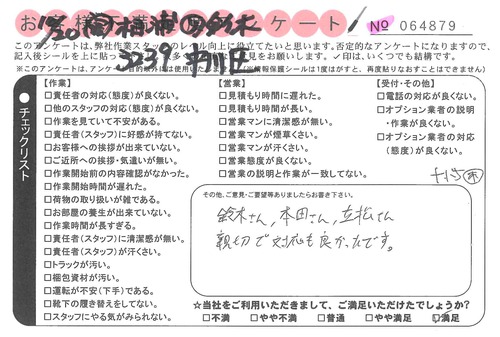 お客様 アンケート No 064879
このアンケートは、弊社作業スタッフのレベル向上に役立てたいと思います。否定的なアンケートになりますので、
記入後シールを上に貼っ ご意見をお願いします。✓印は、いくつでも結構です。
3239
チェックリスト
【作業】
□責任者の対応(態度)が良くない。
□他のスタッフの対応(態度)が良くない。
□作業を見ていて不安がある。
□責任者(スタッフ)に好感が持てない。
□お客様への挨拶が出来ていない。
□ご近所への挨拶・気遣いが無い。
□作業開始前の内容確認がなかった。
□作業開始時間が遅れた。
□荷物の取り扱いが雑である。
□お部屋の養生が出来ていない。
□作業時間が長すぎる。
□責任者(スタッフ)に清潔感が無い。
□責任者(スタッフ)が汗くさい。
□トラックが汚い。
□梱包資材が汚い。
□運転が不安(下手)である。
□靴下の履き替えをしてない。
□スタッフにやる気がみられない。
【営業】
□見積もり時間に遅れた。
□見積もり時間が長い。
□営業マンに清潔感が無い。
□営業マンが煙草くさい。
□営業マンが汗くさい。
□営業態度が良くない。
□営業の説明と作業が一致してない。
【受付・その他】
□電話の対応が良くない。
□オプション業者の説明
・作業が良くない。
□オプション業者の対応
(態度)が良くない。
その他、ご意見・ご要望等ありましたらお書き下さい。
鈴木さん, 本田さん, 立松さん
親切で対応も良かったです。
☆当社をご利用いただきまして、ご満足いただけたでしょうか?
□不満 □やや不満 □普通 □やや満足 □満足